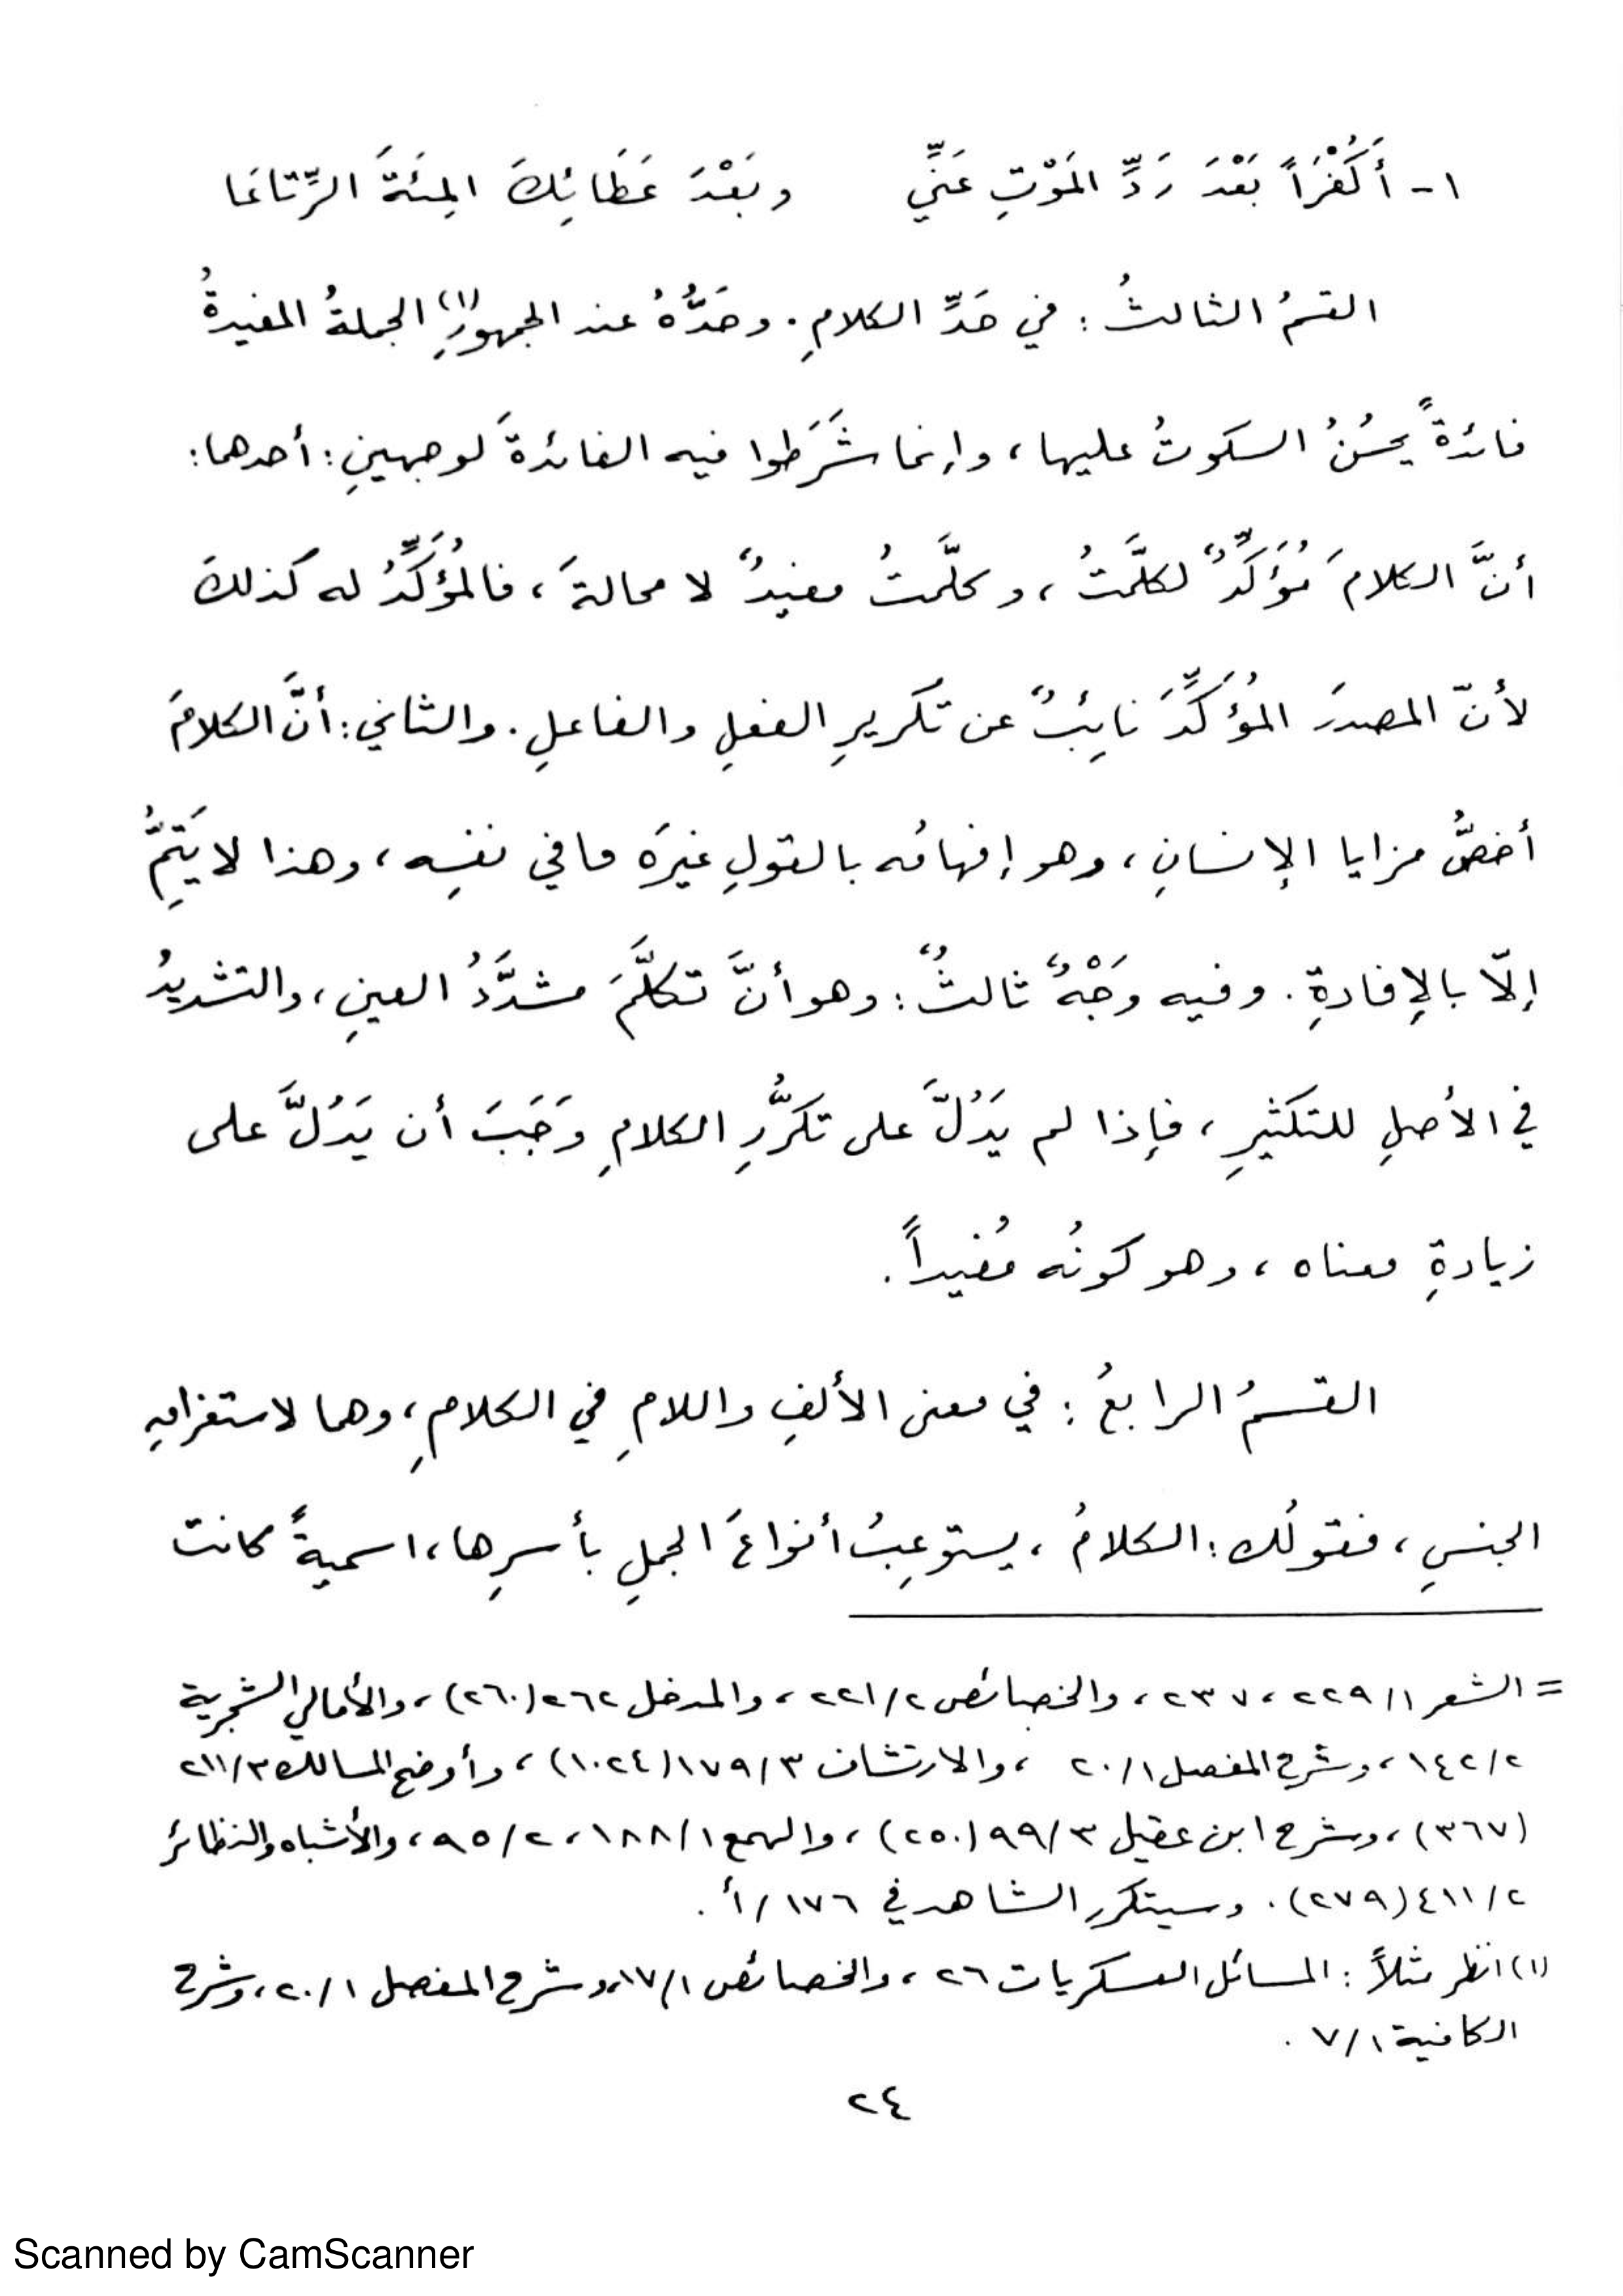 ١- أَكُفْرَاً بَعْدَ رَدِّ المَوْتِ عَنِّي وبَعْدَ عَطَائِكَ المِئَةَ الرِّتاعَا
القسمُ الثالثُ : في حَدِّ الكلامِ . وحَدُّهُ عند الجمهورِ(١) الجملةُ المفيدةُ
فائدةً يحسُنُ السكوتُ عليها ، وإنما شَرَطوا فيه الفائدةَ لوجهينِ : أحدهما :
أنَّ الكلامَ مُؤَكِّدٌ لكلَّمتُ ، وكلَّمتُ مفيدٌ لا محالةَ ، فالمُؤَكِّدُ له كذلكَ
لأنّ المصدرَ المُؤَكِّدَ نائِبٌ عن تَكريرِ الفعلِ والفاعلِ . والثاني : أنَّ الكلامَ
أخصُّ مزايا الإنسانِ ، وهو إفهامُه بالقولِ غيرَه ما في نفسِه ، وهذا لا يَتِمُّ
إلّا بالإفادةِ . وفيه وَجْهٌ ثالثٌ : وهو أنَّ تكلَّمَ مشدَّدُ العينِ ، والتشديدُ
في الأصلِ للتكثيرِ ، فإذا لم يَدُلَّ على تكرُّرِ الكلامِ وَجَبَ أن يَدُلَّ على
زيادةِ معناه ، وهو كونُه مُفيداً .
القسمُ الرابعُ : في معنى الألفِ واللامِ في الكلامِ ، وهما لاستغراقِ
الجنسِ ، فقولُك : الكلامُ ، يستوعِبُ أنواعَ الجملِ بأسرِها ، اسميةً كانت
= الشعر ٢٢٩/١ ، ٢٣٧ ، والخصائص ٢٢١/٢ ، والمدخل ٢٦٢ (٢٦٠) ، والأمالي الشجرية
١٤٢/٢ ، وشرح المفصل ٢٠/١ ، والارتشاف ١٧٩/٣ (١٠٢٤) ، وأوضح المسالك ٢١١/٣
(٣٦٧) ، وشرح ابن عقيل ٩٩/٣ (٢٥٠) ، والهمع ١٨٨/١ ، ٩٥/٢ ، والأشباه والنظائر
٤١١/٢ (٢٧٩) . وسيتكرر الشاهد في ١٧٦/أ .
(١) انظر مثلاً : المسائل العسكريات ٢٦ ، والخصائص ١٧/١ ، وشرح المفصل ٢٠/١ ، وشرح
الكافية ٧/١ .
٢٤
Scanned by CamScanner